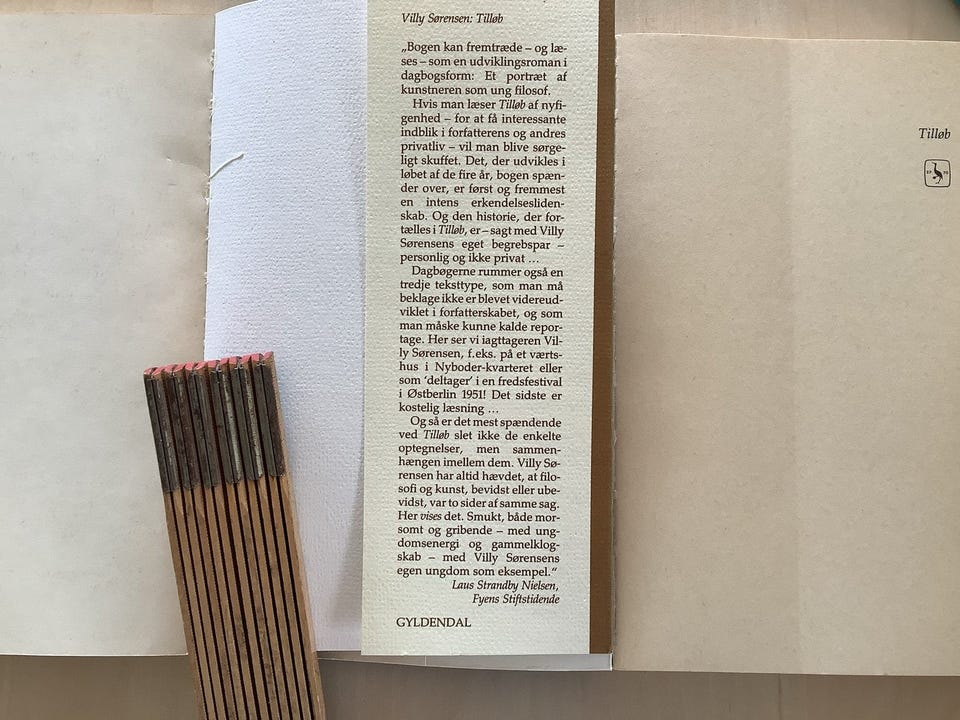 Villy Sørensen: Tilløb
„Bogen kan fremtræde – og læ-
ses – som en udviklingsroman i
dagbogsform: Et portræt af
kunstneren som ung filosof.
Hvis man læser Tilløb af nyfi-
genhed – for at få interessante
indblik i forfatterens og andres
privatliv – vil man blive sørge-
ligt skuffet. Det, der udvikles i
løbet af de fire år, bogen spæn-
der over, er først og fremmest
en intens erkendelsesliden-
skab. Og den historie, der for-
tælles i Tilløb, er – sagt med Villy
Sørensens eget begrebspar –
personlig og ikke privat ...
Dagbøgerne rummer også en
tredje teksttype, som man må
beklage ikke er blevet videreud-
viklet i forfatterskabet, og som
man måske kunne kalde repor-
tage. Her ser vi iagttageren Vil-
ly Sørensen, f.eks. på et værts-
hus i Nyboder-kvarteret eller
som ‘deltager’ i en fredsfestival
i Østberlin 1951! Det sidste er
kostelig læsning ...
Og så er det mest spændende
ved Tilløb slet ikke de enkelte
optegnelser, men sammen-
hængen imellem dem. Villy Sø-
rensen har altid hævdet, at filo-
sofi og kunst, bevidst eller ube-
vidst, var to sider af samme sag.
Her vises det. Smukt, både mor-
somt og gribende – med ung-
domsenergi og gammelklog-
skab – med Villy Sørensens
egen ungdom som eksempel.“
Laus Strandby Nielsen,
Fyens Stiftstidende
GYLDENDAL
Tilløb